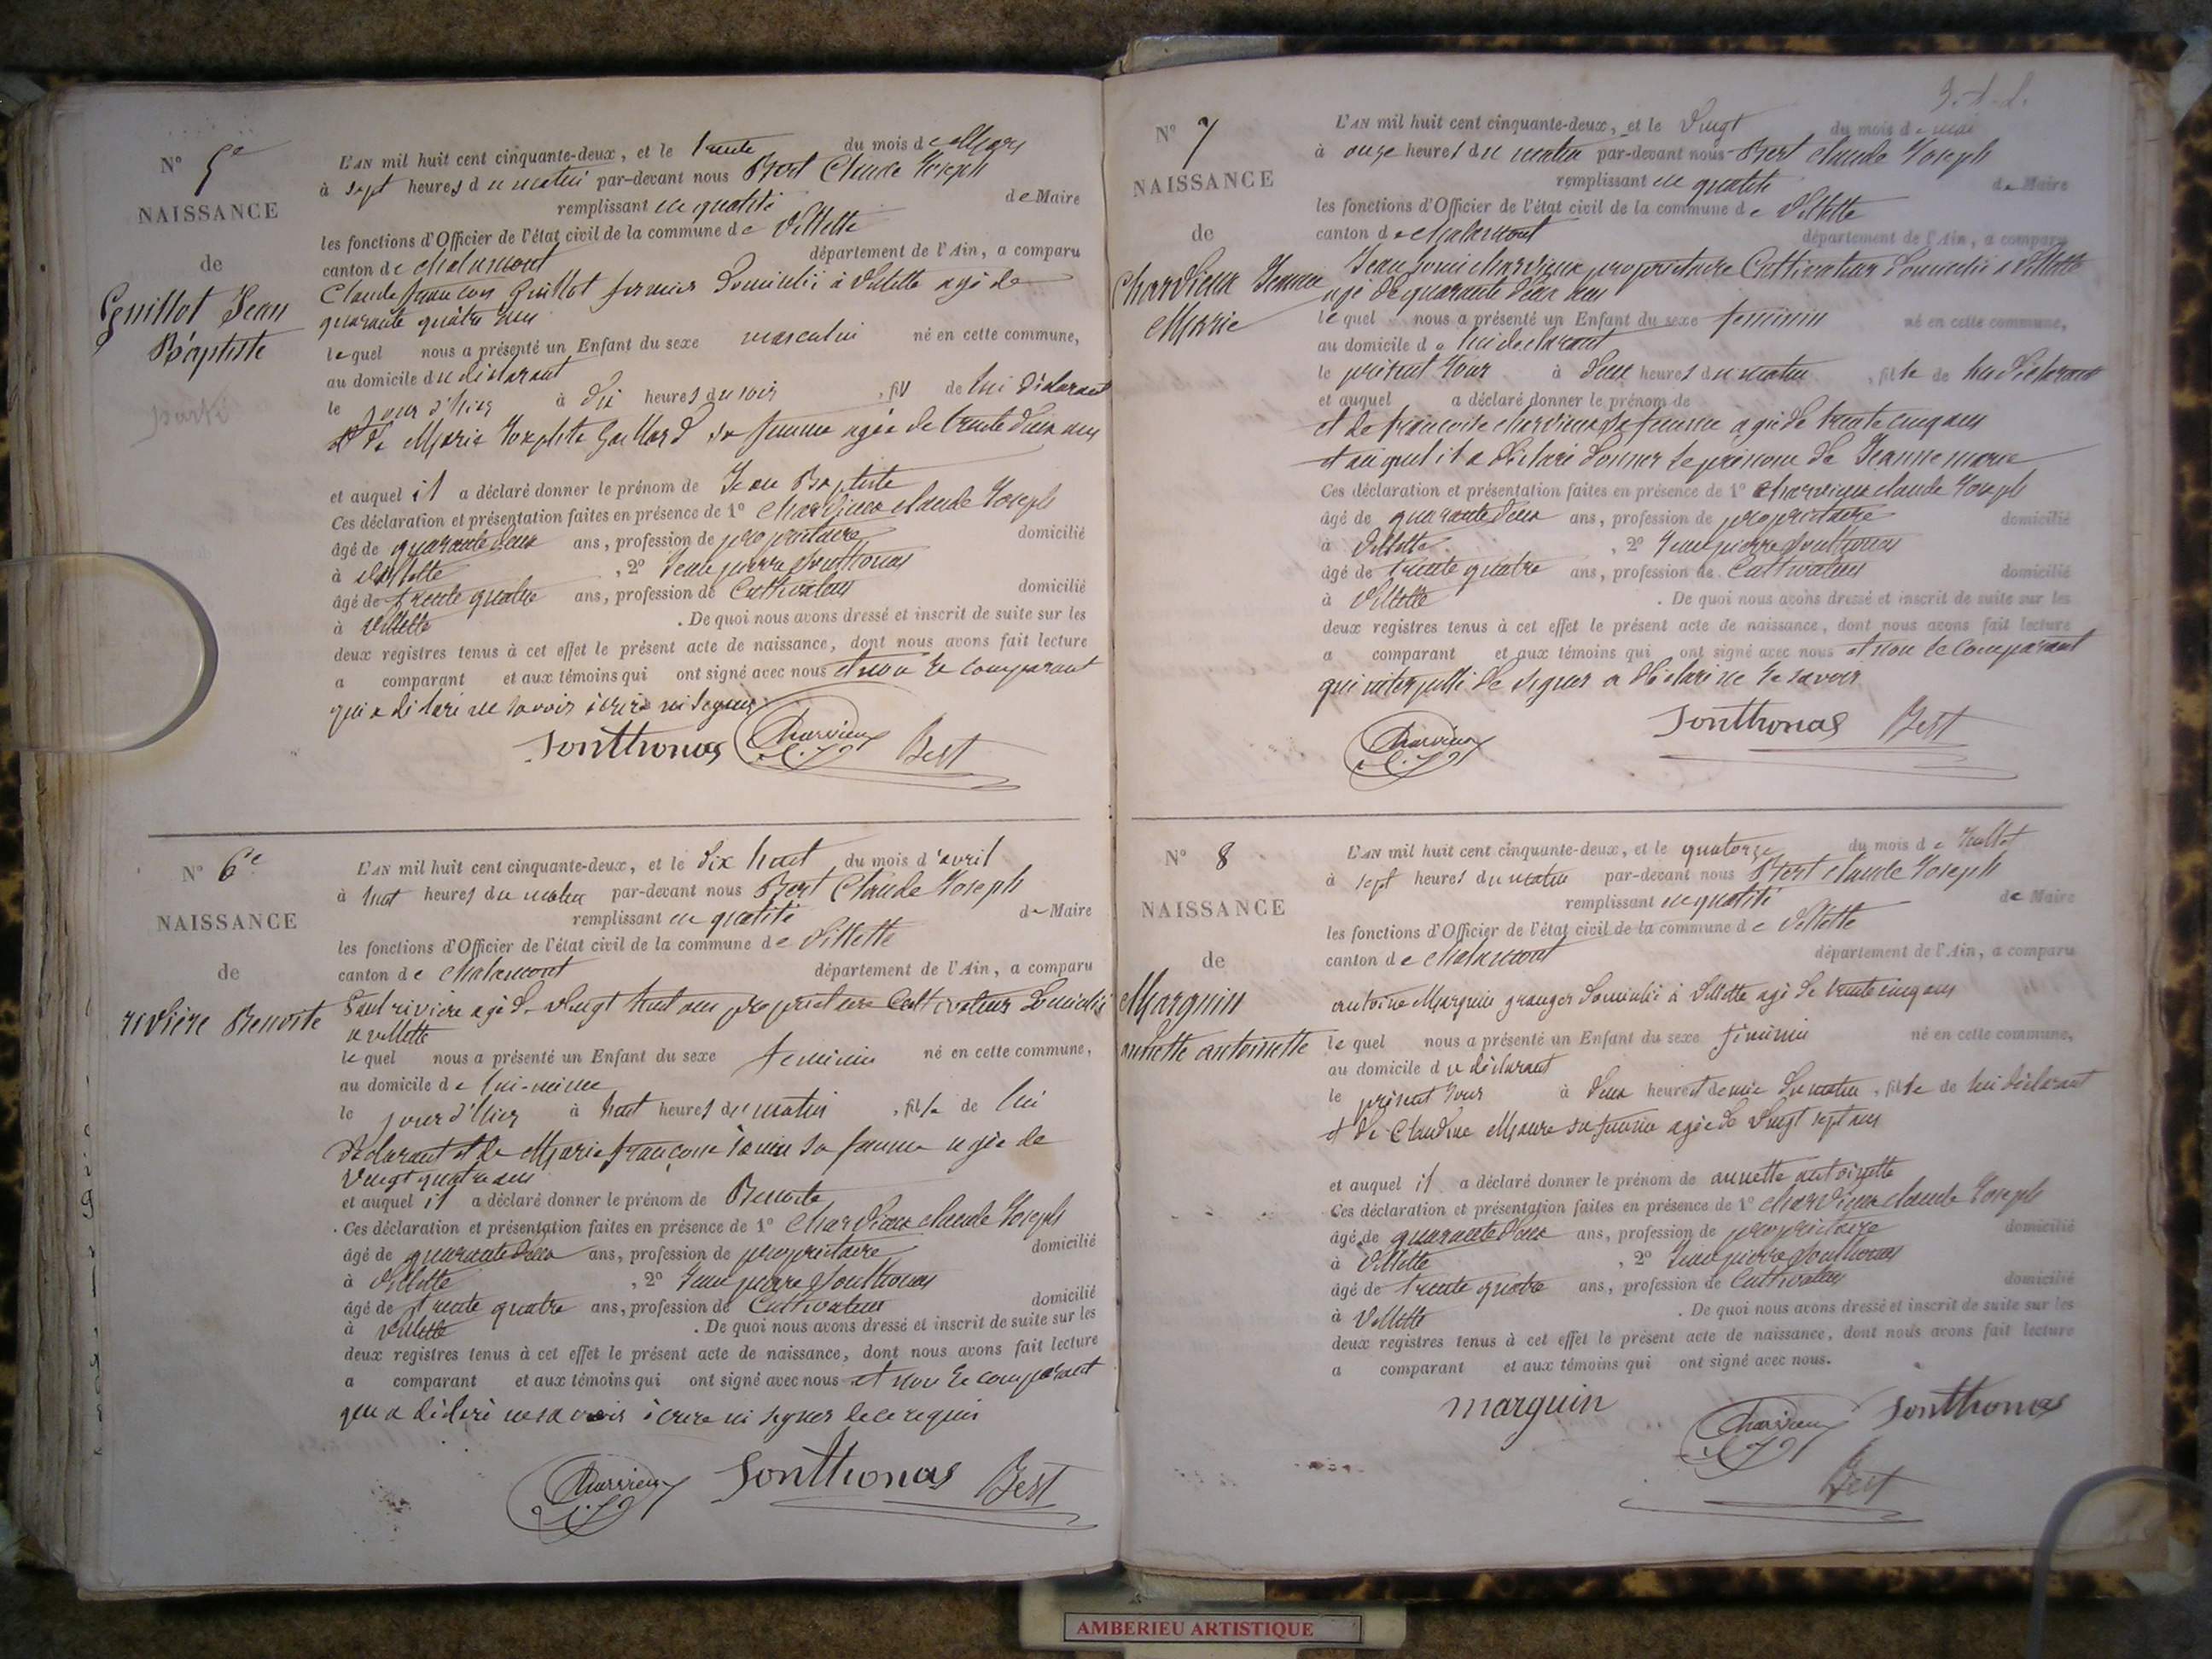 N° 5e
NAISSANCE
de
Guillot Jean
Baptiste
L'AN mil huit cent cinquante-deux, et le trente du mois de Mars
à sept heures du matin par-devant nous Bert Claude Joseph
remplissant en qualité de Maire
les fonctions d'Officier de l'état civil de la commune de Villette
canton de chalamont département de l'Ain, a comparu
Claude françois Guillot fermier Domicilié à Villette agé de
quarante quatre ans
lequel nous a présenté un Enfant du sexe masculin né en cette commune,
au domicile du déclarant
le jour d'hier à dix heures du soir, fils de lui déclarant
et de Marie Gaillard sa femme agée de trente deux ans
et auquel il a déclaré donner le prénom de Jean Baptiste
Ces déclaration et présentation faites en présence de 1° Charvieux claude Joseph
âgé de quarante deux ans, profession de propriétaire domicilié
à Villette, 2° Jean pierre Sonthonas
âgé de trente quatre ans, profession de Cultivateur domicilié
à Villette. De quoi nous avons dressé et inscrit de suite sur les
deux registres tenus à cet effet le présent acte de naissance, dont nous avons fait lecture
a comparant et aux témoins qui ont signé avec nous et non le comparant
qui a déclaré ne savoir écrire ni signer.
Sonthonas Charvieux C.J. Bert
N° 6e
NAISSANCE
de
rivière Benoite
L'AN mil huit cent cinquante-deux, et le dix huit du mois d'avril
à huit heures du matin par-devant nous Bert Claude Joseph
remplissant en qualité de Maire
les fonctions d'Officier de l'état civil de la commune de Villette
canton de chalamont département de l'Ain, a comparu
Paul rivière agé de vingt huit ans propriétaire Cultivateur Domicilié
a villette
lequel nous a présenté un Enfant du sexe feminin né en cette commune,
au domicile de lui-même
le jour d'hier à huit heures du matin, fille de lui
déclarant et de Marie françoise sa femme agée de
vingt quatre ans
et auquel il a déclaré donner le prénom de Benoite
Ces déclaration et présentation faites en présence de 1° Charvieux claude Joseph
âgé de quarante deux ans, profession de propriétaire domicilié
à Villette, 2° Jean pierre Sonthonas
âgé de trente quatre ans, profession de Cultivateur domicilié
à villette. De quoi nous avons dressé et inscrit de suite sur les
deux registres tenus à cet effet le présent acte de naissance, dont nous avons fait lecture
a comparant et aux témoins qui ont signé avec nous et non le comparant
qui a déclaré ne savoir écrire ni signer de ce requis
Charvieux C.J. Sonthonas Bert
N° 7
NAISSANCE
de
Charvieux Jeanne
Marie
L'AN mil huit cent cinquante-deux, et le vingt du mois de mai
à onze heures du matin par-devant nous Bert claude Joseph
remplissant en qualité de Maire
les fonctions d'Officier de l'état civil de la commune de Villette
canton de chalamont département de l'Ain, a comparu
Jean charvieux propriétaire Cultivateur Domicilié a Villette
agé de quarante deux ans
lequel nous a présenté un Enfant du sexe feminin né en cette commune,
au domicile de lui declarant
le présent Jour à deux heures du matin, fille de lui déclarant
et auquel a déclaré donner le prénom de
et de françoise charvieux sa femme agée de trente cinq ans
et auquel il a déclaré donner le prénom de Jeanne marie
Ces déclaration et présentation faites en présence de 1° Charvieux claude Joseph
âgé de quarante deux ans, profession de propriétaire domicilié
à Villette, 2° Jean pierre Sonthonas
âgé de trente quatre ans, profession de Cultivateur domicilié
à Villette. De quoi nous avons dressé et inscrit de suite sur les
deux registres tenus à cet effet le présent acte de naissance, dont nous avons fait lecture
a comparant et aux témoins qui ont signé avec nous et non le comparant
qui interpellé de signer a déclaré ne le savoir
Charvieux C.J. Sonthonas Bert
N° 8
NAISSANCE
de
Marguin
annette antoinette
L'AN mil huit cent cinquante-deux, et le quatorze du mois de Juillet
à sept heures du matin par-devant nous Bert claude Joseph
remplissant en qualité de Maire
les fonctions d'Officier de l'état civil de la commune de Villette
canton de chalamont département de l'Ain, a comparu
antoine Marguin granger Domicilié à Villette agé de trente cinq ans
lequel nous a présenté un Enfant du sexe féminin né en cette commune,
au domicile du déclarant
le présent Jour à deux heures et demie du matin, fille de lui déclarant
et de Claudine Maure sa femme agée de vingt sept ans
et auquel il a déclaré donner le prénom de annette antoinette
Ces déclaration et présentation faites en présence de 1° Charvieux claude Joseph
âgé de quarante deux ans, profession de propriétaire domicilié
à Villette, 2° Jean pierre Sonthonas
âgé de trente quatre ans, profession de Cultivateur domicilié
à Villette. De quoi nous avons dressé et inscrit de suite sur les
deux registres tenus à cet effet le présent acte de naissance, dont nous avons fait lecture
a comparant et aux témoins qui ont signé avec nous.
marguin Charvieux C.J. Sonthonas
Bert
AMBERIEU ARTISTIQUE